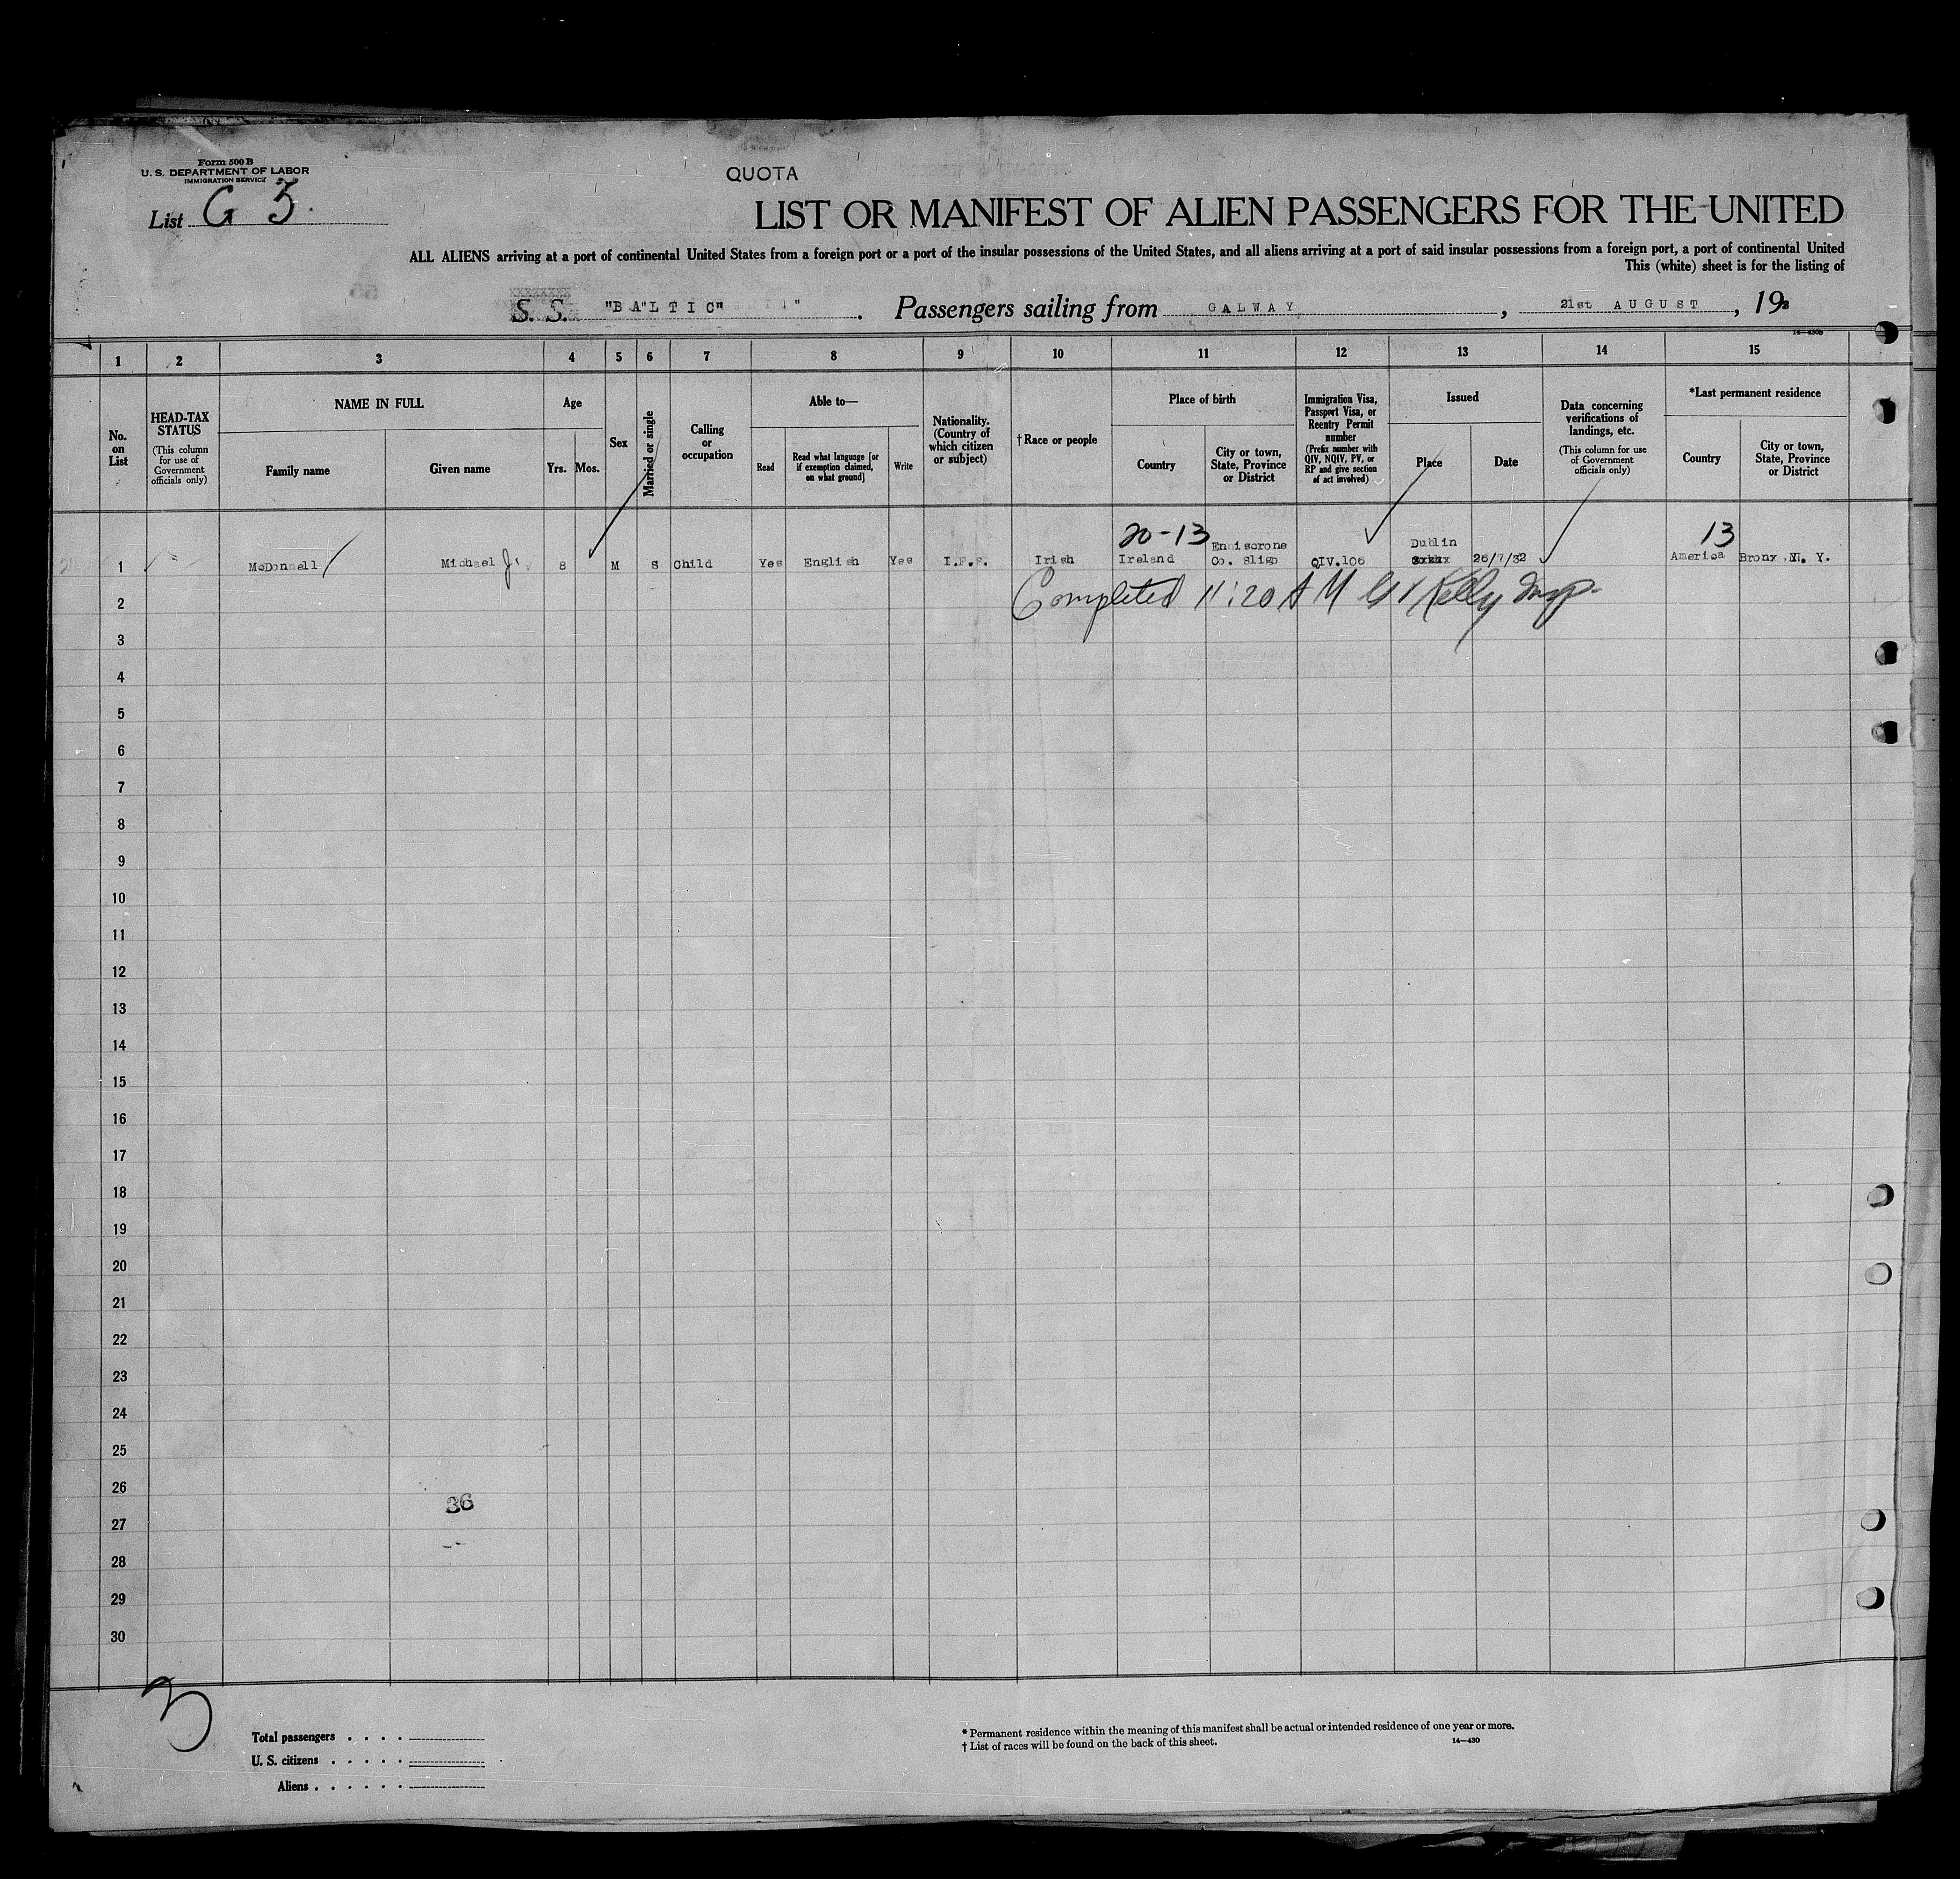 Form 500 B
U. S. DEPARTMENT OF LABOR
IMMIGRATION SERVICE
List G 3.
QUOTA
LIST OR MANIFEST OF ALIEN PASSENGERS FOR THE UNITED
ALL ALIENS arriving at a port of continental United States from a foreign port or a port of the insular possessions of the United States, and all aliens arriving at a port of said insular possessions from a foreign port, a port of continental United
This (white) sheet is for the listing of
S. S. "BALTIC" . Passengers sailing from GALWAY , 21st AUGUST , 19
1 2 3 4 5 6 7 8 9 10 11 12 13 14 15
No. on List
HEAD-TAX STATUS
(This column for use of Government officials only)
NAME IN FULL
Family name
Given name
Age
Yrs.
Mos.
Sex
Married or single
Calling or occupation
Able to—
Read
Read what language [or if exemption claimed, on what ground]
Write
Nationality. (Country of which citizen or subject)
† Race or people
Place of birth
Country
City or town, State, Province or District
Immigration Visa, Passport Visa, or Reentry Permit number
(Prefix number with QIV, NQIV, PV, or RP and give section of act involved)
Issued
Place
Date
Data concerning verifications of landings, etc.
(This column for use of Government officials only)
*Last permanent residence
Country
City or town, State, Province or District
20-13 13
Enniscrone Dublin
1 McDonnell Michael J. 8 M S Child Yes English Yes I.F.S. Irish Ireland Co. Sligo QIV.106 26/7/32 America Bronx N. Y.
Completed 11:20 AM Kelly Insp.
2
3
4
5
6
7
8
9
10
11
12
13
14
15
16
17
18
19
20
21
22
23
24
25
26
36
27
28
29
30
3
Total passengers . . . .
U. S. citizens . . . . .
Aliens . . . . . .
* Permanent residence within the meaning of this manifest shall be actual or intended residence of one year or more.
† List of races will be found on the back of this sheet.
14—430